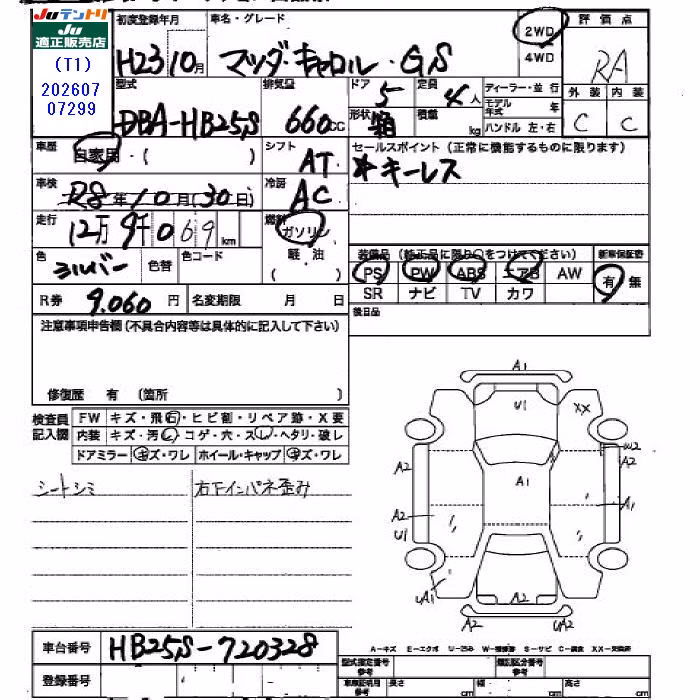 Juテントリ
Ju
適正販売店
(T1)
202607
07299
初度登録年月
H23 10月
車名・グレード
マツダ・キャロル・GS
2WD
4WD
評価点
RA
型式
DBA-HB25S
排気量
660cc
ドア
5
定員
4人
形状
箱
積載
kg
ディーラー・並行
モデル年式
年
ハンドル 左・右
外装
内装
C
C
車歴
自家用・( )
シフト
AT
セールスポイント(正常に機能するものに限ります)
*キーレス
車検
R8年10月(30日)
冷房
AC
走行
12万9千069km
燃料
ガソリン
軽・油
( )
色
シルバー
色替
色コード
装備品(純正品に限り○をつけてください)
新車保証書
PS
PW
ABS
エアB
AW
SR
ナビ
TV
カワ
有・無
R券
9.060円
名変期限
月
日
後日品
注意事項申告欄(不具合内容等は具体的に記入して下さい)
修復歴 有 (箇所 )
検査員
記入欄
FW
キズ・飛石・ヒビ割・リペア跡・X要
内装
キズ・汚レ・コゲ・穴・スレ・ヘタリ・破レ
ドアミラー
キズ・ワレ
ホイール・キャップ
キズ・ワレ
シートシミ
右下インパネ歪み
A1
U1
XX
W2
A2
A2
A1
A1
A2
U1
UA1
A2
UA2
A2
U2
車台番号
HB25S-720328
登録番号
A-キズ E-エクボ U-凹み W-補修跡 S-サビ C-腐食 XX-交換済
型式指定番号
参考
類別区分番号
参考
車庫証明用
参考
長さ
cm
幅
cm
高さ
cm